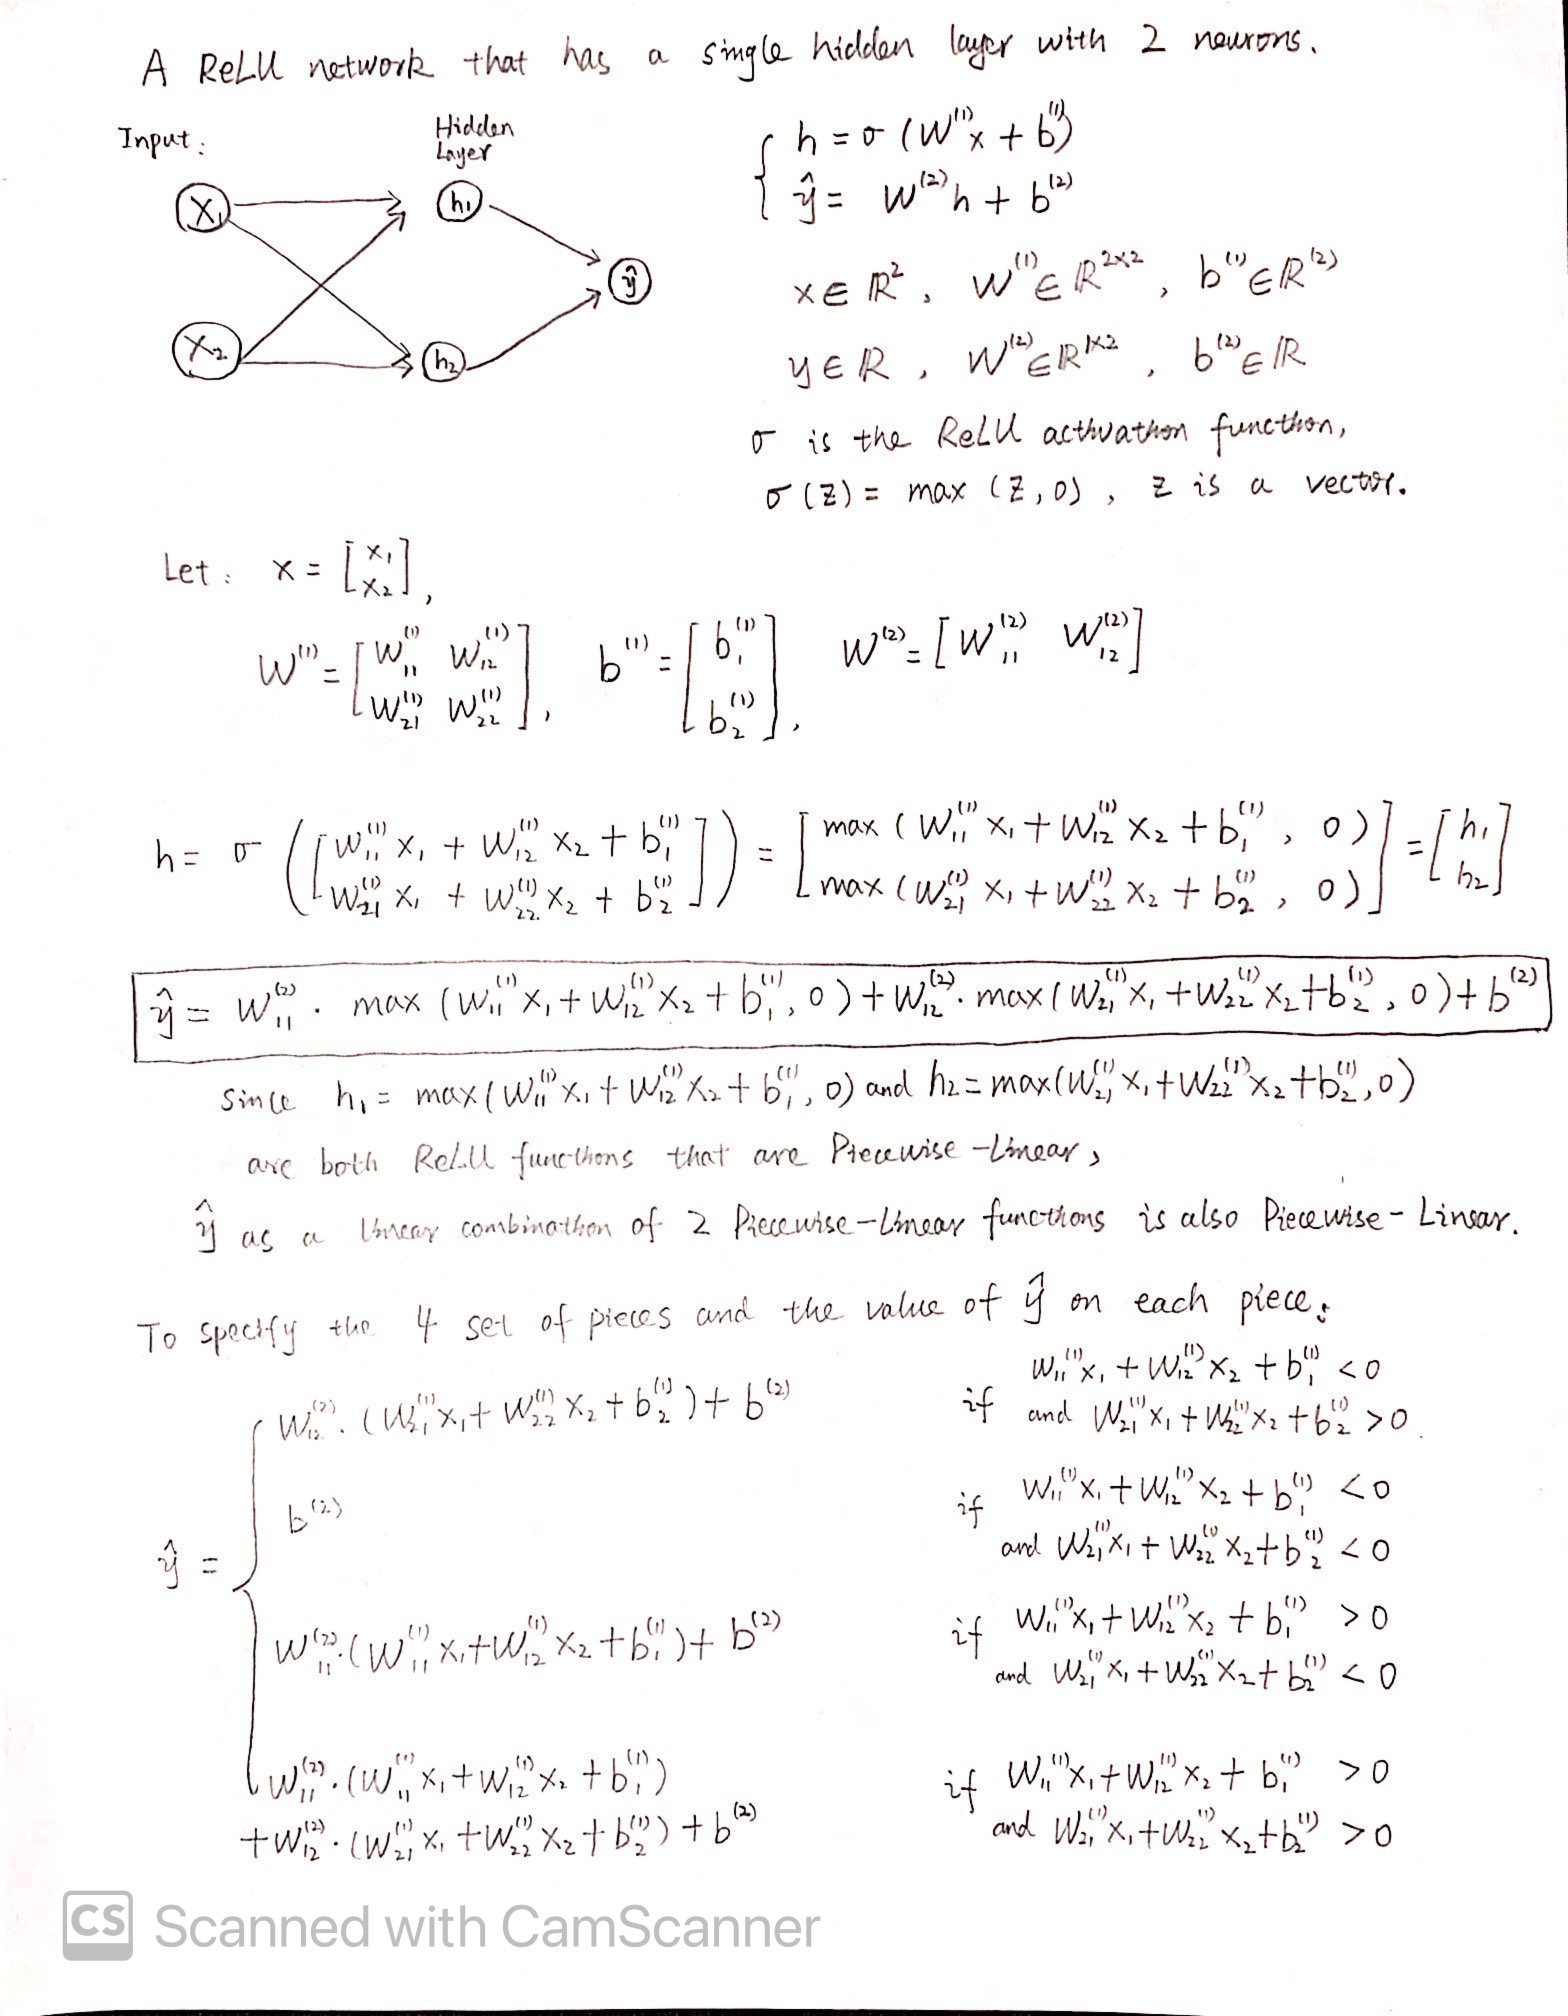 A ReLU network that has a single hidden layer with 2 neurons.
Input:
Hidden
Layer
X₁
h₁
X₂
h₂
ŷ
{ h = σ (W⁽¹⁾x + b⁽¹⁾)
ŷ = W⁽²⁾h + b⁽²⁾
x ∈ ℝ², W⁽¹⁾ ∈ ℝ²ˣ², b⁽¹⁾ ∈ ℝ⁽²⁾
y ∈ ℝ, W⁽²⁾ ∈ ℝ¹ˣ², b⁽²⁾ ∈ ℝ
σ is the ReLU activation function,
σ(z) = max (z, 0), z is a vector.
Let: x = [x₁; x₂],
W⁽¹⁾ = [W₁₁⁽¹⁾ W₁₂⁽¹⁾; W₂₁⁽¹⁾ W₂₂⁽¹⁾], b⁽¹⁾ = [b₁⁽¹⁾; b₂⁽¹⁾], W⁽²⁾ = [W₁₁⁽²⁾ W₁₂⁽²⁾]
h = σ ([W₁₁⁽¹⁾ x₁ + W₁₂⁽¹⁾ x₂ + b₁⁽¹⁾; W₂₁⁽¹⁾ x₁ + W₂₂⁽¹⁾ x₂ + b₂⁽¹⁾]) = [max (W₁₁⁽¹⁾ x₁ + W₁₂⁽¹⁾ x₂ + b₁⁽¹⁾, 0); max (W₂₁⁽¹⁾ x₁ + W₂₂⁽¹⁾ x₂ + b₂⁽¹⁾, 0)] = [h₁; h₂]
ŷ = W₁₁⁽²⁾ · max (W₁₁⁽¹⁾x₁ + W₁₂⁽¹⁾x₂ + b₁⁽¹⁾, 0) + W₁₂⁽²⁾ · max (W₂₁⁽¹⁾x₁ + W₂₂⁽¹⁾x₂ + b₂⁽¹⁾, 0) + b⁽²⁾
Since h₁ = max (W₁₁⁽¹⁾x₁ + W₁₂⁽¹⁾x₂ + b₁⁽¹⁾, 0) and h₂ = max(W₂₁⁽¹⁾x₁ + W₂₂⁽¹⁾x₂ + b₂⁽¹⁾, 0)
are both ReLU functions that are Piecewise-Linear,
ŷ as a linear combination of 2 Piecewise-Linear functions is also Piecewise-Linear.
To specify the 4 set of pieces and the value of ŷ on each piece:
W₁₂⁽²⁾ · (W₂₁⁽¹⁾x₁ + W₂₂⁽¹⁾x₂ + b₂⁽¹⁾) + b⁽²⁾ if W₁₁⁽¹⁾x₁ + W₁₂⁽¹⁾x₂ + b₁⁽¹⁾ < 0
and W₂₁⁽¹⁾x₁ + W₂₂⁽¹⁾x₂ + b₂⁽¹⁾ > 0.
b⁽²⁾ if W₁₁⁽¹⁾x₁ + W₁₂⁽¹⁾x₂ + b₁⁽¹⁾ < 0
ŷ = { and W₂₁⁽¹⁾x₁ + W₂₂⁽¹⁾x₂ + b₂⁽¹⁾ < 0
W₁₁⁽²⁾ · (W₁₁⁽¹⁾x₁ + W₁₂⁽¹⁾x₂ + b₁⁽¹⁾) + b⁽²⁾ if W₁₁⁽¹⁾x₁ + W₁₂⁽¹⁾x₂ + b₁⁽¹⁾ > 0
and W₂₁⁽¹⁾x₁ + W₂₂⁽¹⁾x₂ + b₂⁽¹⁾ < 0
W₁₁⁽²⁾ · (W₁₁⁽¹⁾x₁ + W₁₂⁽¹⁾x₂ + b₁⁽¹⁾) if W₁₁⁽¹⁾x₁ + W₁₂⁽¹⁾x₂ + b₁⁽¹⁾ > 0
+ W₁₂⁽²⁾ · (W₂₁⁽¹⁾x₁ + W₂₂⁽¹⁾x₂ + b₂⁽¹⁾) + b⁽²⁾ and W₂₁⁽¹⁾x₁ + W₂₂⁽¹⁾x₂ + b₂⁽¹⁾ > 0
CS Scanned with CamScanner